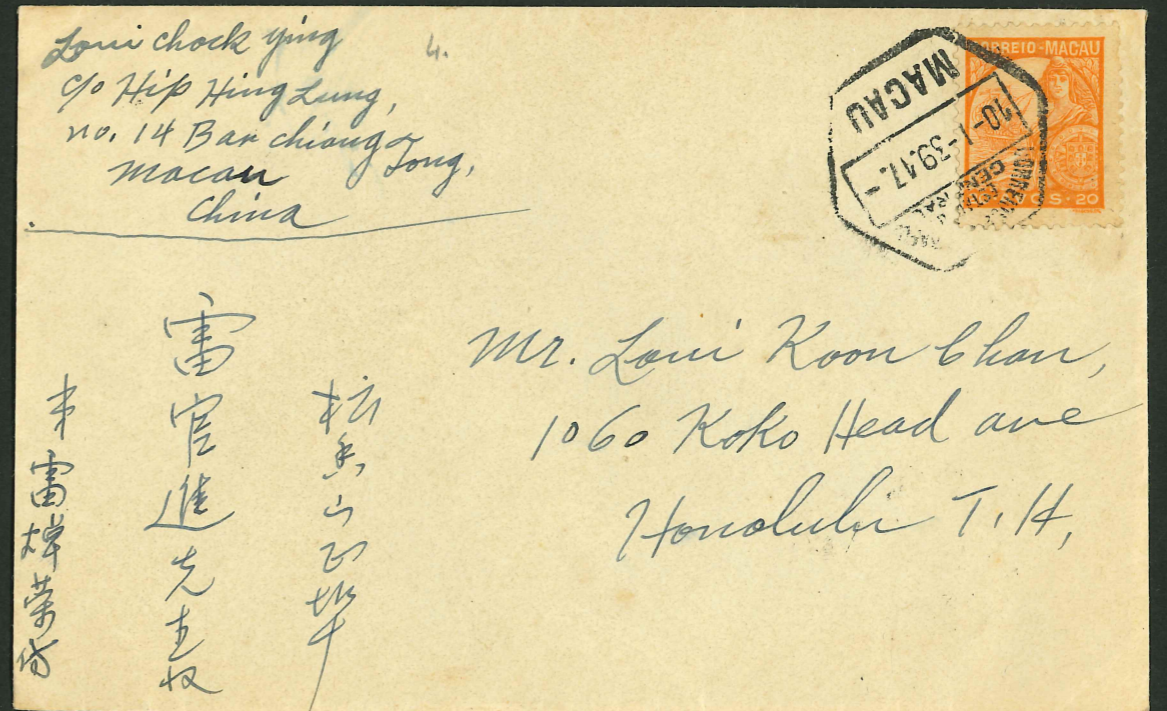 Loui Chock Ying
c/o Hip Hing Lung,
no. 14 Ban Chiang Tong,
Macau
China
4.
CORREIO - MACAU
20
MACAU
10-1-39.17.-
CENTRAL
Mr. Loui Koon Chan,
1060 Koko Head ave
Honolulu T.H,
檀香山正埠
雷官進先生收